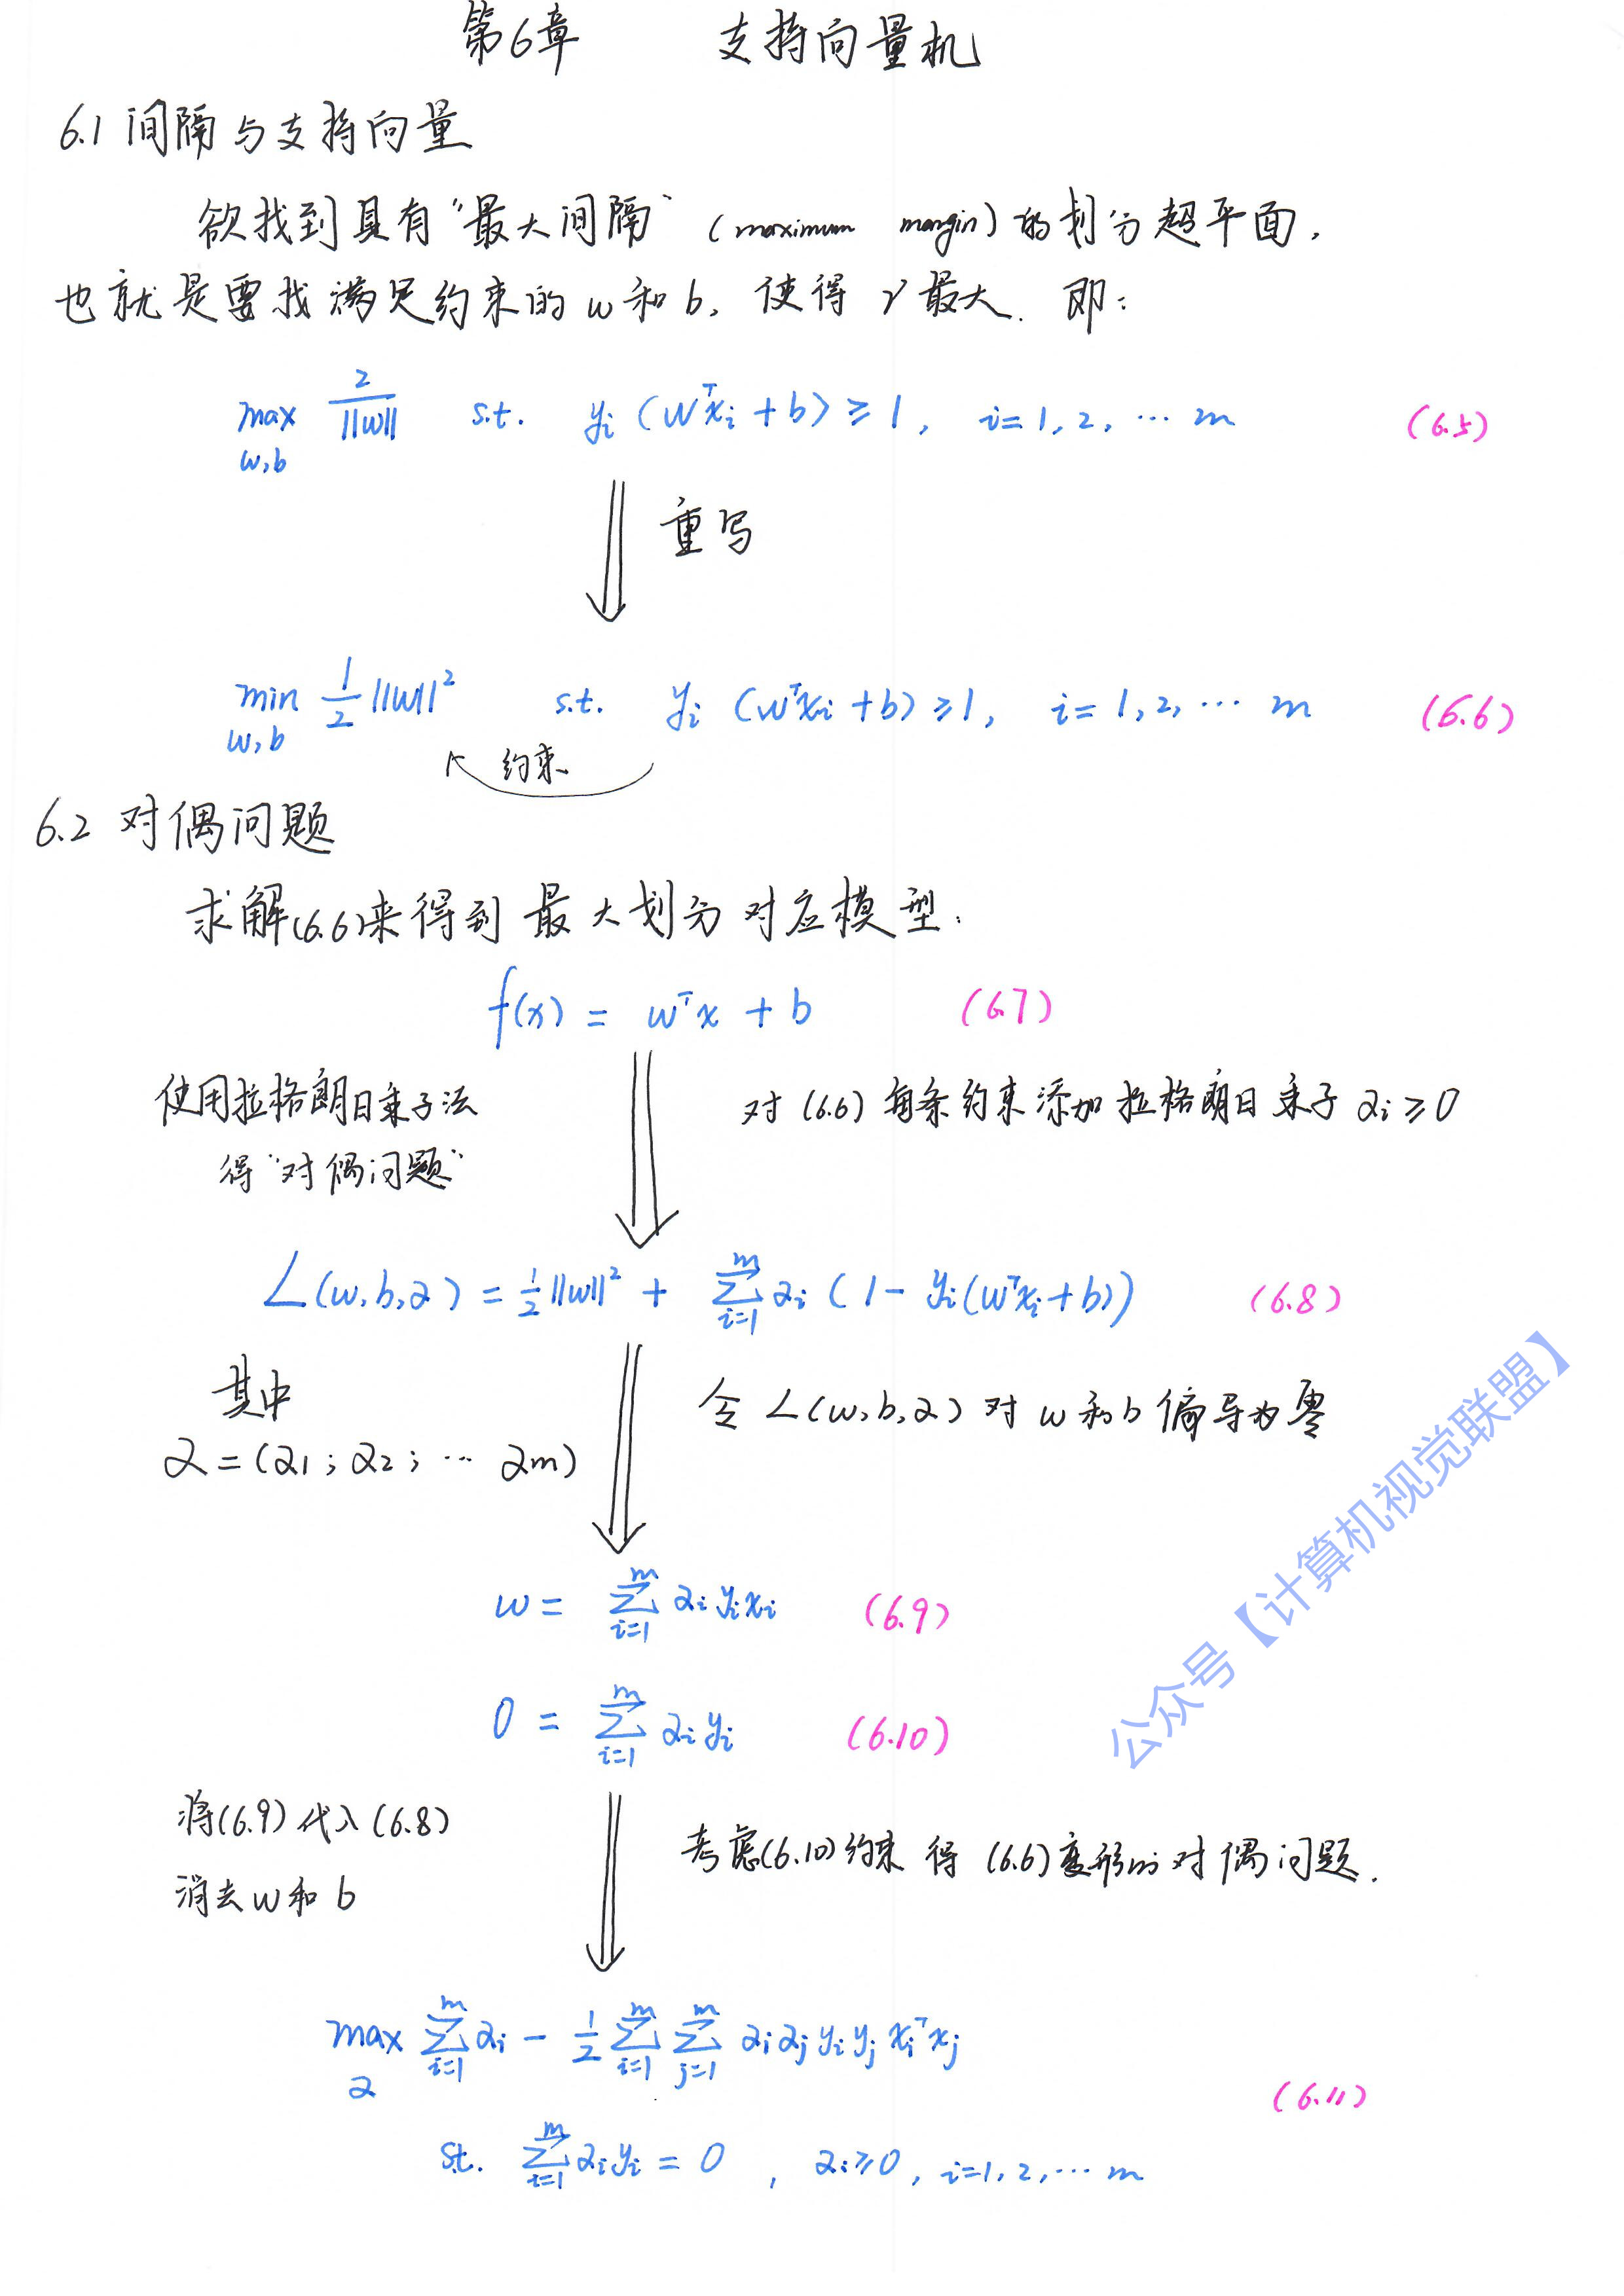 第6章 支持向量机
6.1 间隔与支持向量
欲找到具有“最大间隔”(maximum margin)的划分超平面,
也就是要找满足约束的w和b, 使得γ最大. 即:
max_{w,b} 2/||w|| s.t. y_i (w^T x_i + b) ≥ 1, i=1,2,… m (6.5)
重写
min_{w,b} 1/2 ||w||² s.t. y_i (w^T x_i + b) ≥ 1, i=1,2,… m (6.6)
约束
6.2 对偶问题
求解(6.6)来得到最大划分对应模型:
f(x) = w^T x + b (6.7)
使用拉格朗日乘子法
得“对偶问题”
对(6.6)每条约束添加拉格朗日乘子 α_i ≥ 0
L(w,b,α) = 1/2 ||w||² + ∑_{i=1}^m α_i (1 - y_i(w^T x_i + b)) (6.8)
其中
α = (α_1; α_2; … α_m)
令 L(w,b,α) 对 w 和 b 偏导为零
w = ∑_{i=1}^m α_i y_i x_i (6.9)
0 = ∑_{i=1}^m α_i y_i (6.10)
将(6.9)代入(6.8)
消去w和b
考虑(6.10)约束 得 (6.6)变形的对偶问题.
max_α ∑_{i=1}^m α_i - 1/2 ∑_{i=1}^m ∑_{j=1}^m α_i α_j y_i y_j x_i^T x_j
(6.11)
st. ∑_{i=1}^m α_i y_i = 0 , α_i ≥ 0, i=1,2,… m
公众号【计算机视觉联盟】